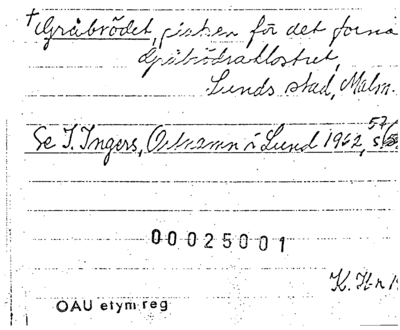 †Gråbrödet, platsen för det forna
Gråbrödraklostret,
Lunds stad, Malm.
Se I. Ingers, Ortnamn i Lund 1962, s.
00025001
K. H-n
OAU etym reg